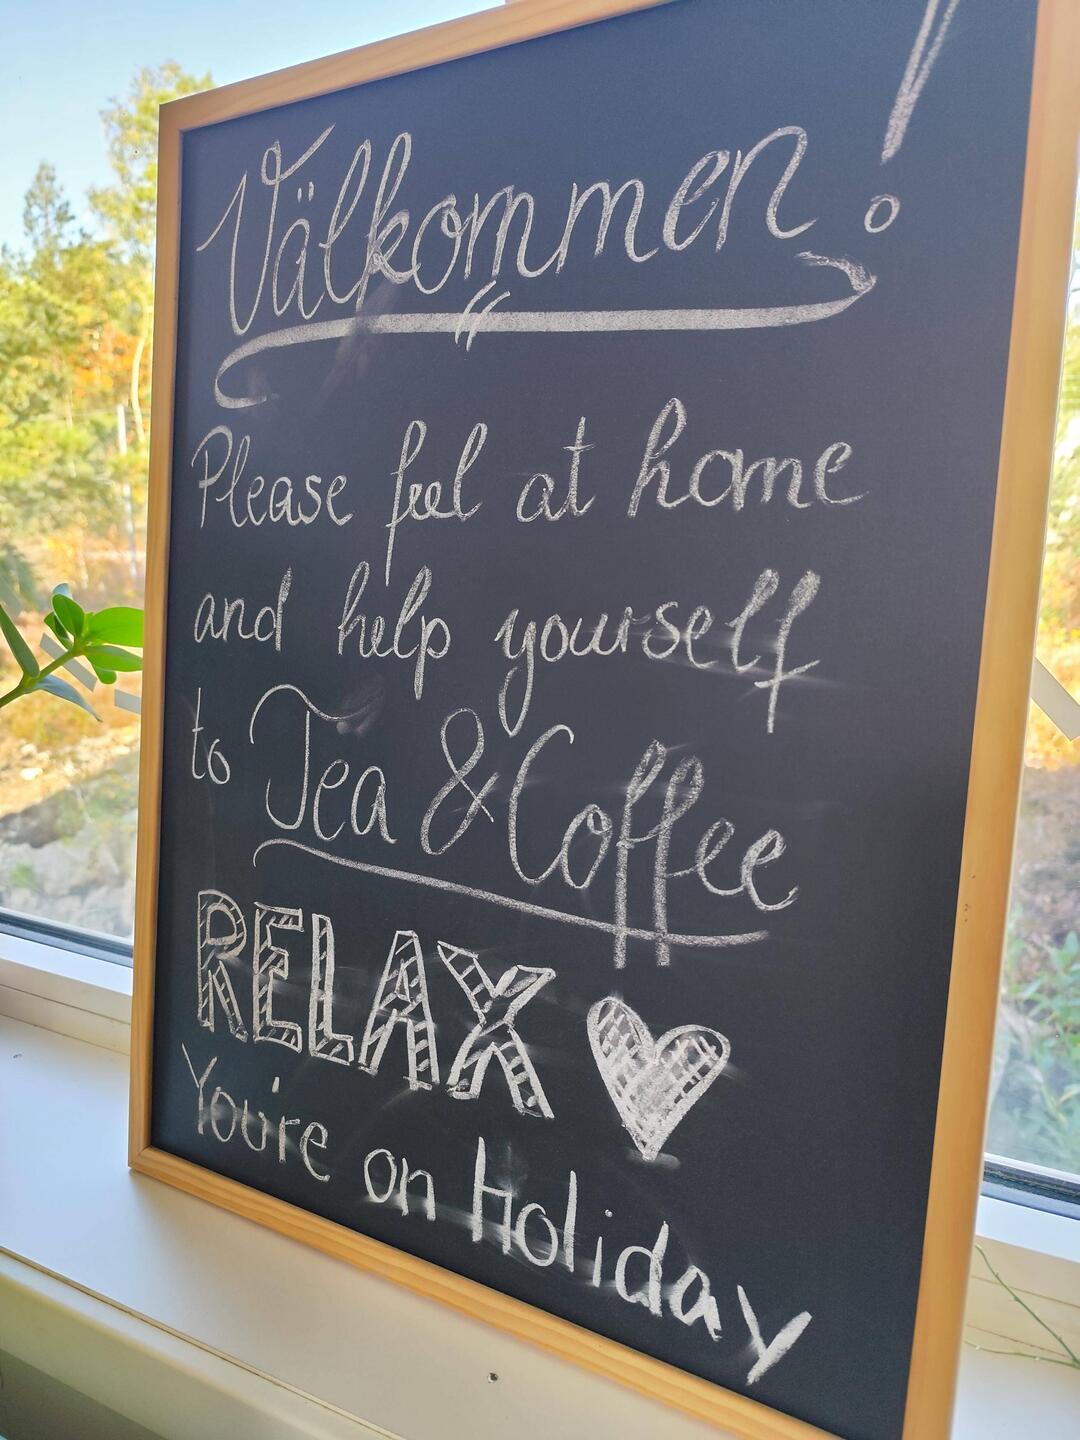 Välkommen!
Please feel at home
and help yourself
to Tea & Coffee
RELAX
You're on Holiday